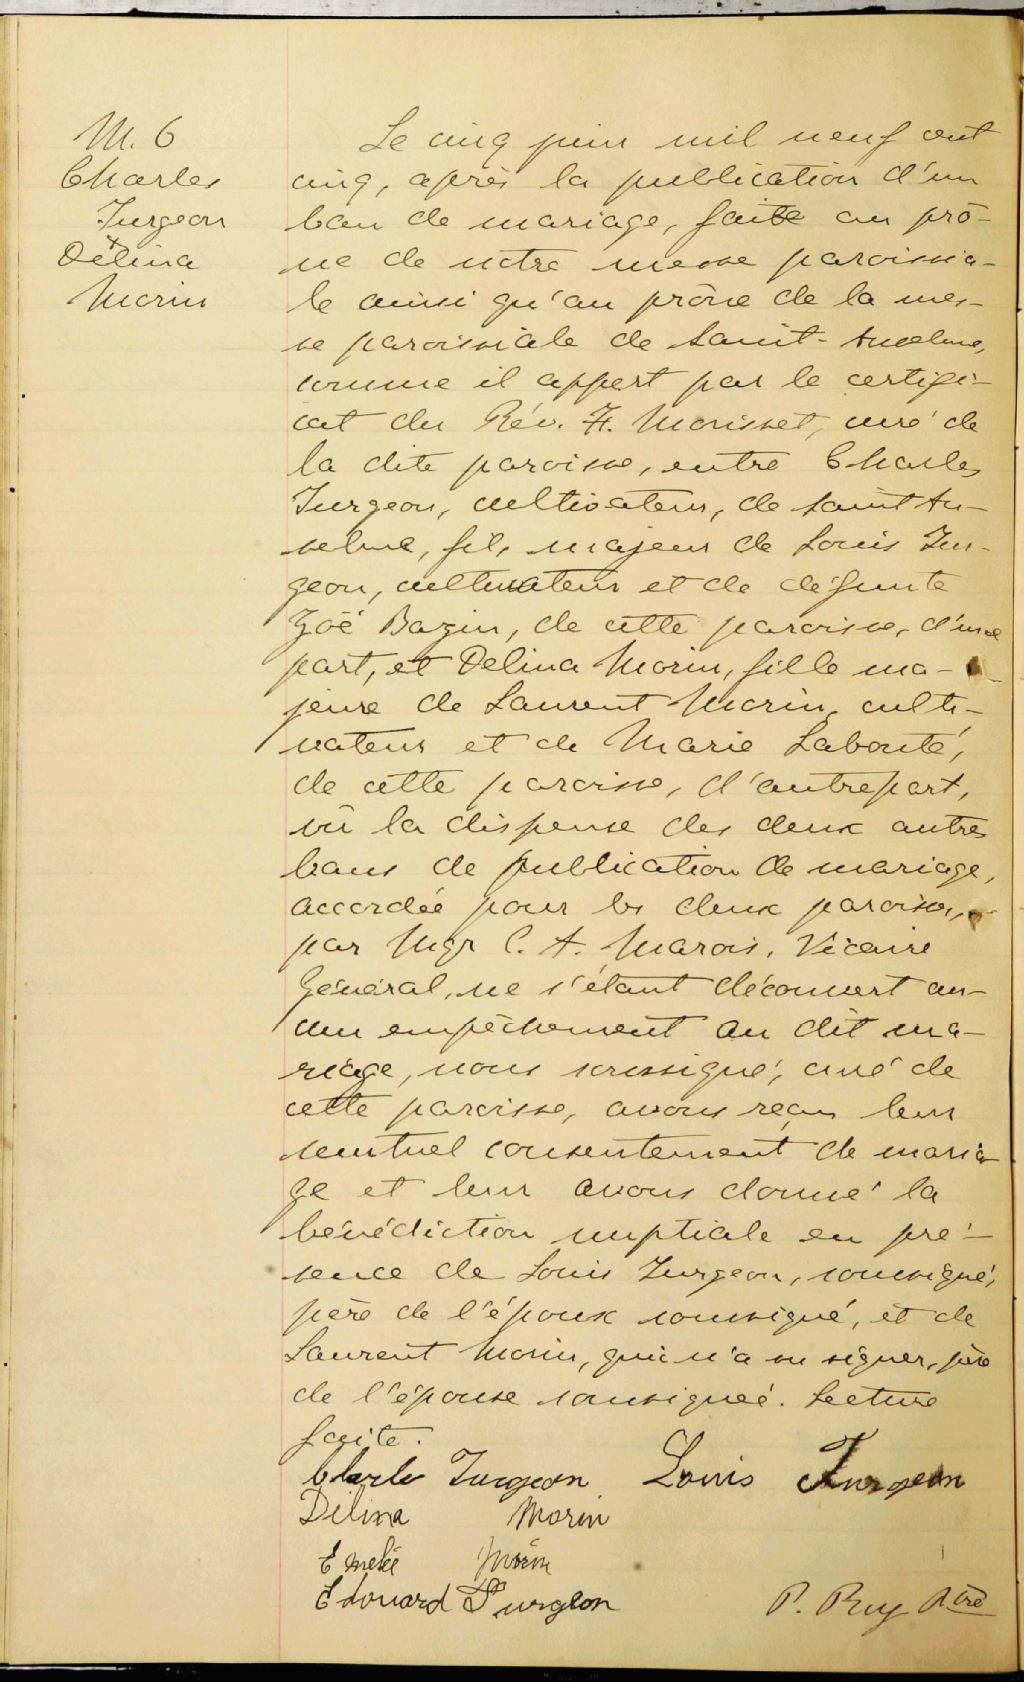 M. 6
Charles
Turgeon
+
Délina
Morin
Le cinq juin mil neuf cent
cinq, après la publication d'un
ban de mariage, faite au prô-
ne de notre messe paroissia-
le ainsi qu'au prône de la mes-
se paroissiale de Saint-Anselme,
comme il appert par le certifi-
cat du Rév. F. Morisset, curé de
la dite paroisse, entre Charles
Turgeon, cultivateur, de Saint An-
selme, fils majeur de Louis Tur-
geon, cultivateur et de défunte
Zoë Bazin, de cette paroisse, d'une
part, et Delina Morin, fille ma-
jeure de Laurent Morin, culti-
vateur et de Marie Labonté,
de cette paroisse, d'autrepart,
vû la dispense des deux autres
bans de publication de mariage,
accordée pour les deux paroisses,
par Mgr C. A. Marois, Vicaire
Général, ne s'étant découvert au-
cun empêchement au dit ma-
riage, nous soussigné, curé de
cette paroisse, avons reçu leur
mutuel consentement de maria-
ge et leur avons donné la
bénédiction nuptiale en pré-
sence de Louis Turgeon, soussigné,
père de l'époux soussigné, et de
Laurent Morin, qui n'a su signer, père
de l'épouse soussignée. Lecture
faite.
Charles Turgeon Louis Turgeon
Délina Morin
Morin
Edouard Turgeon P. Roy Ptre